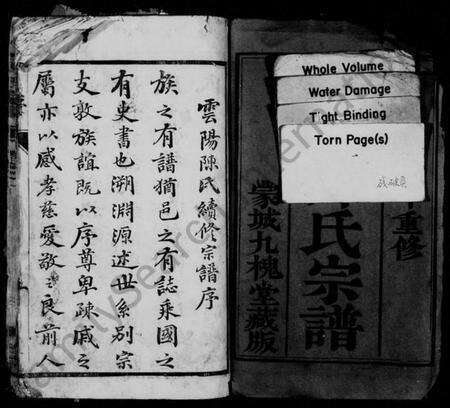 Whole Volume
Water Damage
Tight Binding
Torn Page(s)
重修
氏宗譜
蒙城九槐堂藏版
雲陽陳氏續修宗譜序
族之有譜猶邑之有誌乘國之
有史書也溯淵源述世系别宗
支敦族誼既以序尊卑疎戚之
屬亦以感孝慈愛敬之良前人